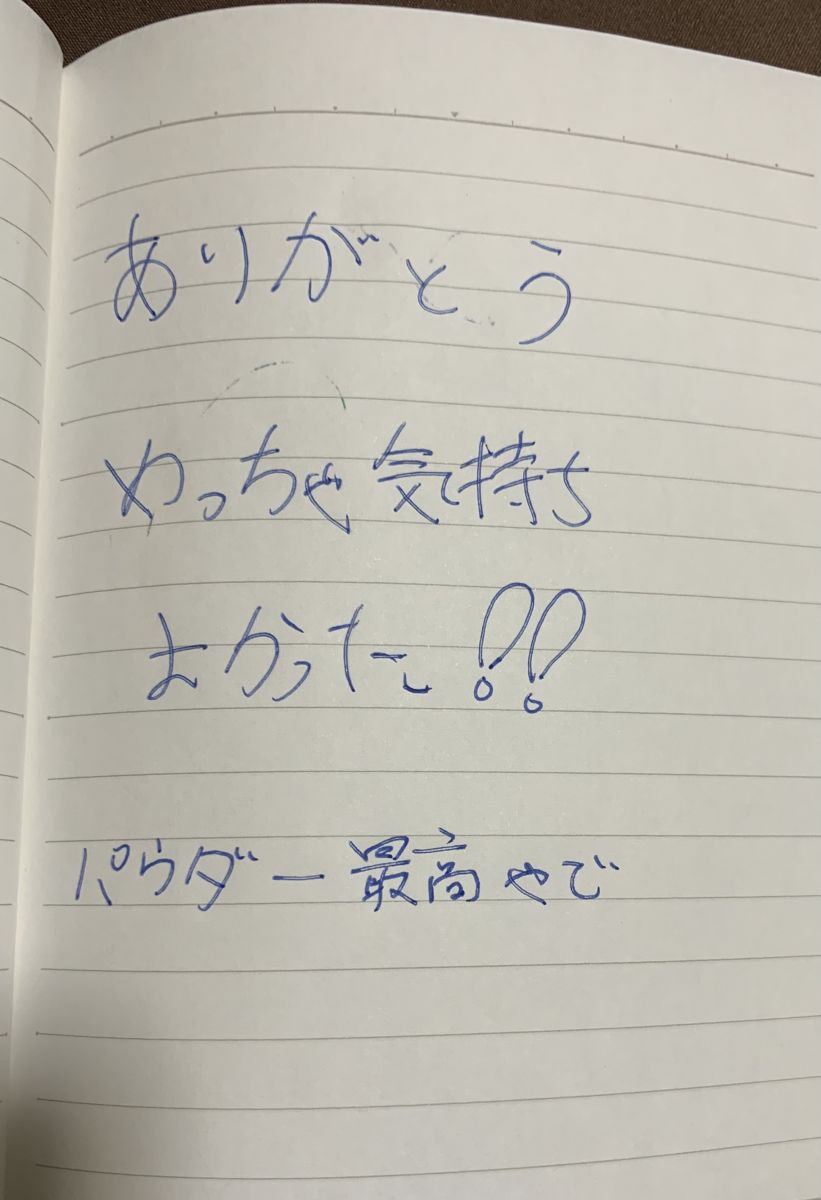 ありがとう
めっちゃ気持ち
よかった!!
パウダー最高やで